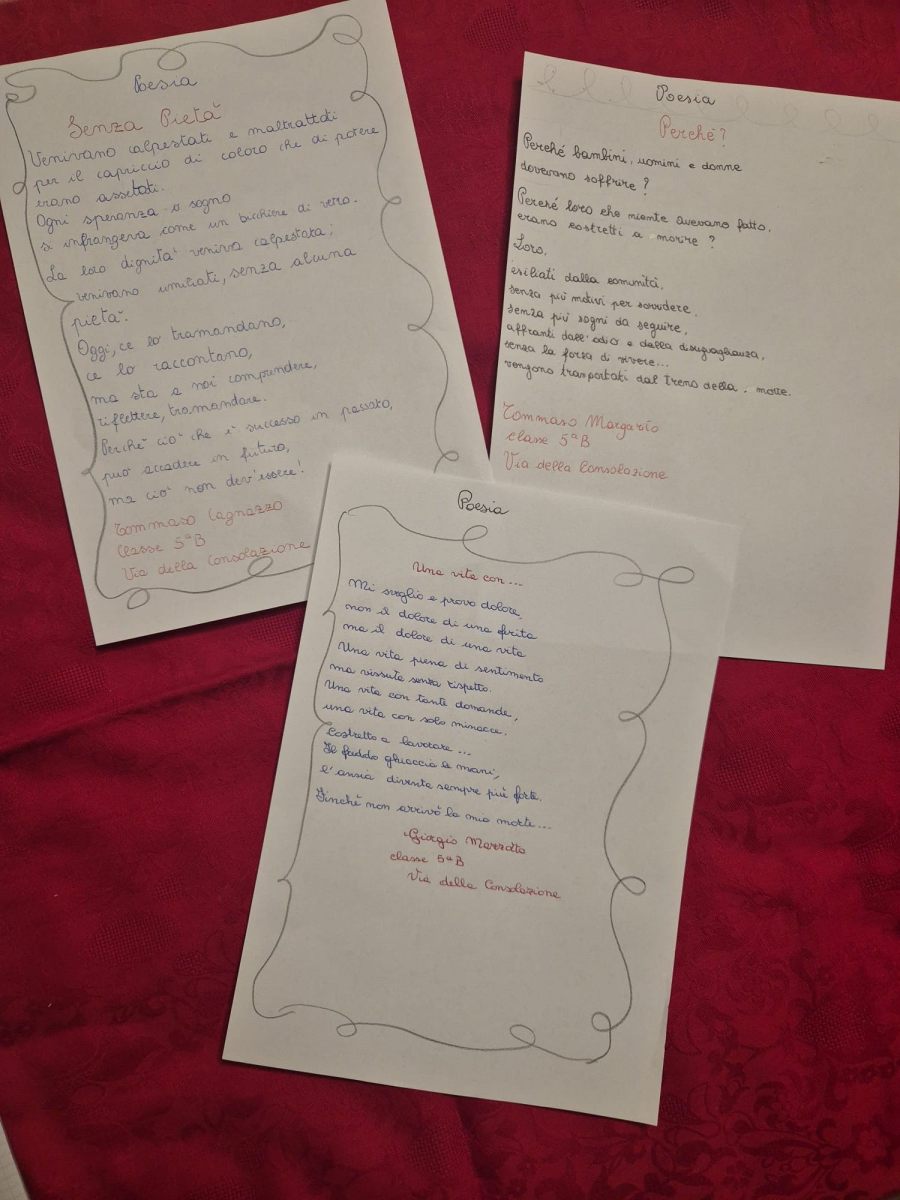 Poesia
Senza Pietà
Venivano calpestati e maltrattati
per il capriccio di coloro che di potere
erano assetati.
Ogni speranza o sogno
si infrangeva come un bicchiere di vetro.
La loro dignità veniva calpestata;
venivano umiliati, senza alcuna
pietà.
Oggi, ce lo tramandano,
ce lo raccontano,
ma sta a noi comprendere,
riflettere, tramandare.
Perchè ciò che è successo in passato,
può accadere in futuro,
ma ciò non dev'essere!
Tommaso Cagnazzo
Classe 5ªB
Via della Consolazione
Poesia
Perché?
Perché bambini, uomini e donne
dovevano soffrire?
Perché loro che niente avevano fatto,
erano costretti a morire?
Loro,
esiliati dalla comunità,
senza più motivi per sorridere,
senza più sogni da seguire,
affranti dall'odio e dalla disuguaglianza,
senza la forza di vivere...
vengono trasportati dal Treno della . morte.
Tommaso Margarito
classe 5ªB
Via della Consolazione
Poesia
Una vita con...
Mi sveglio e provo dolore,
non il dolore di una ferita
ma il dolore di una vita
Una vita piena di sentimento
ma vissuta senza rispetto.
Una vita con tante domande,
una vita con solo minacce.
Costretto a lavorare ...
Il freddo ghiaccia le mani,
l'ansia diventa sempre più forte.
Finchè non arrivò la mia morte...
Giorgio
classe 5ªB
Via della Consolazione